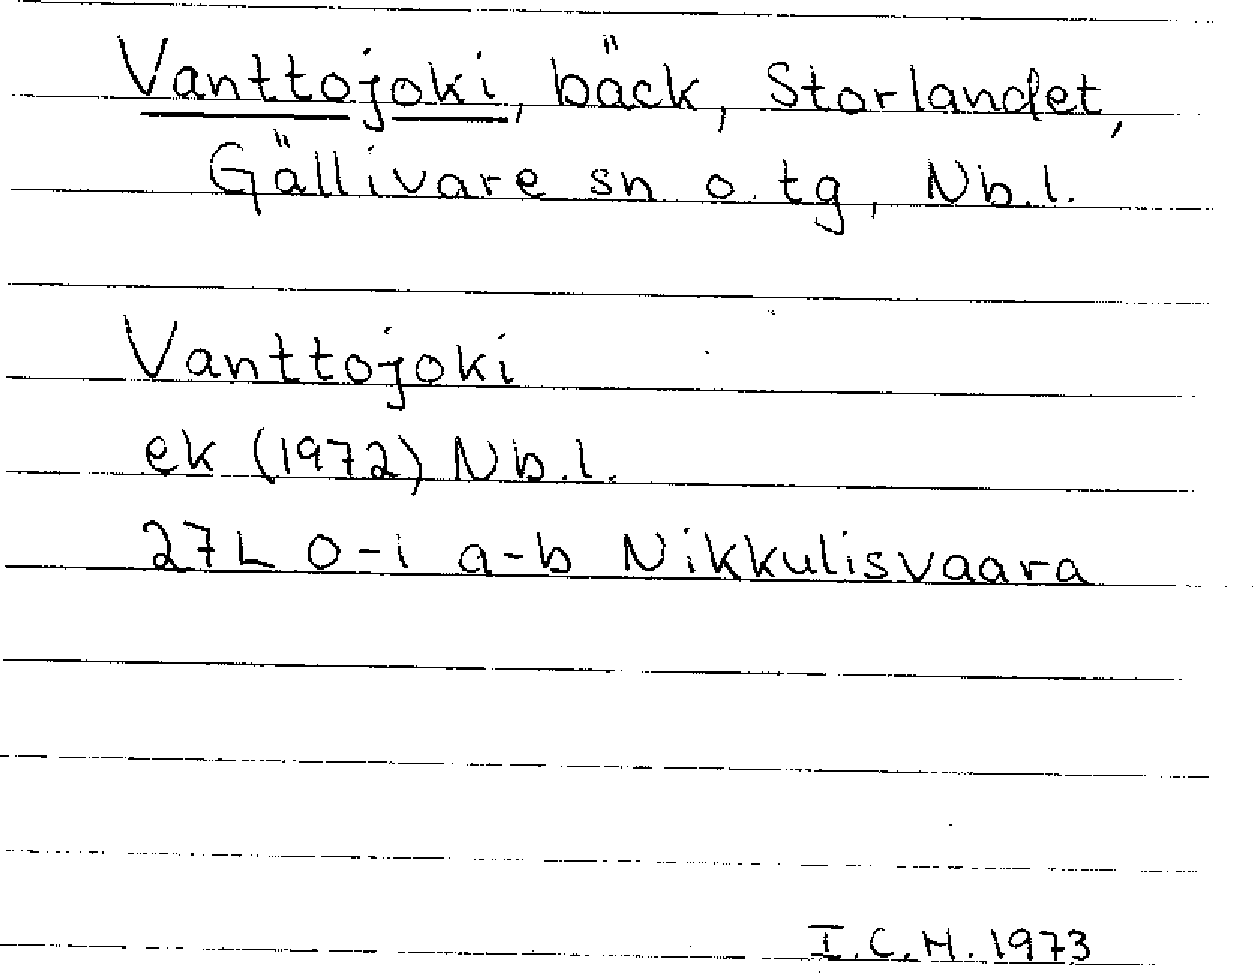 Vanttojoki, bäck, Storlandet,
Gällivare sn o. tg, Nb.l.
Vanttojoki
ek (1972) Nb.l.
27L 0-1 a-b Nikkulisvaara
I.C.H. 1973